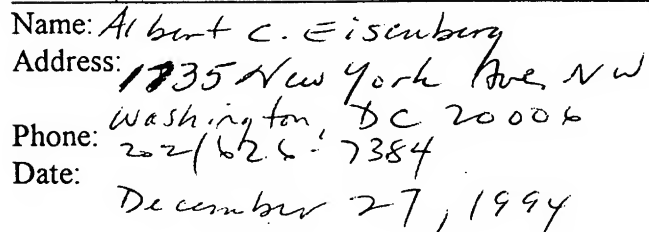 Name: Albert C. Eisenberg
Address: 1735 New York Ave NW
Washington, DC 20006
Phone: 202/626-7384
Date:
December 27, 1994